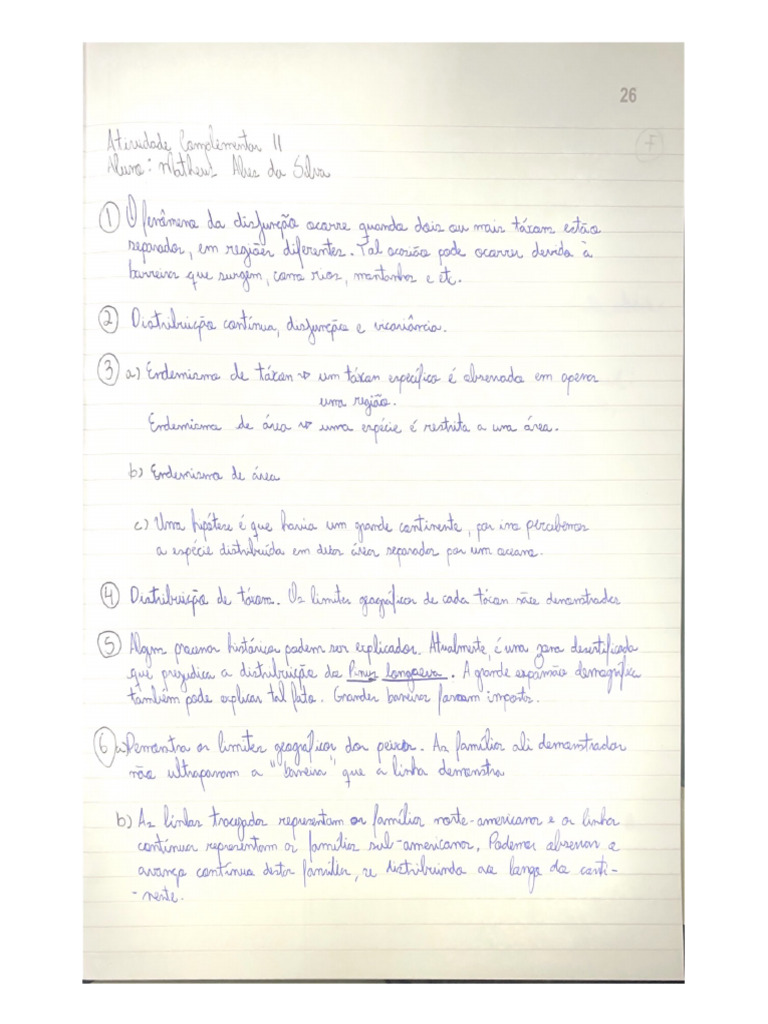 26
f
Atividade Complementar II
Aluno: Matheus Alves da Silva
1 O fenômeno da disjunção ocorre quando dois ou mais táxons estão
separados, em regiões diferentes. Tal ocasião pode ocorrer devido à
barreiras que surgem, como rios, montanhas e etc.
2 Distribuição contínua, disjunção e vicariância.
3 a) Endemismo de táxon → um táxon específico é observado em apenas
uma região.
Endemismo de área → uma espécie é restrita a uma área.
b) Endemismo de área
c) Uma hipótese é que havia um grande continente, por isso percebemos
a espécie distribuída em duas áreas separadas por um oceano.
4 Distribuição de táxons. Os limites geográficos de cada táxon são demonstrados
5 Alguns processos históricos podem ser explicados. Atualmente, é uma zona desertificada
que prejudica a distribuição da Pinus longaeva. A grande expansão demográfica
também pode explicar tal fato. Grandes barreiras foram impostas.
6 a) Demonstra os limites geográficos dos peixes. As famílias ali demonstradas
não ultrapassam a "barreira" que a linha demonstra
b) As linhas tracejadas representam as famílias norte-americanas e as linhas
contínuas representam as famílias sul-americanas. Podemos observar o
avanço contínuo destas famílias, se distribuindo ao longo do conti-
-nente.